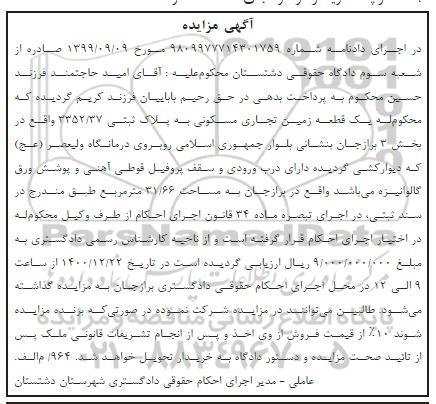 آگهی مزایده
در اجرای دادنامه شماره ۹۸۰۹۹۷۷۷۱۴۳۰۱۷۵۹ مورخ ۱۳۹۹/۰۹/۰۹ صادره از
شعبه سوم دادگاه حقوقی دشتستان محکوم‌علیه : آقای امید حاجتمند فرزند
حسین محکوم به پرداخت بدهی در حق رحیم بابائیان فرزند کریم گردیده که
محکوم‌له یک قطعه زمین تجاری مسکونی به پلاک ثبتی ۳۳۵۲/۳۷ واقع در
بخش ۳ برازجان بنشانی بلوار جمهوری اسلامی روبروی درمانگاه ولیعصر (عج)
که دیوارکشی گردیده دارای درب ورودی و سقف پروفیل قوطی آهنی و پوشش ورق
گالوانیزه می‌باشد واقع در برازجان به مساحت ۳۱/۶۶ مترمربع طبق مندرج در
سند ثبتی، در اجرای تبصره ماده ۳۴ قانون اجرای احکام از طرف وکیل محکوم‌له
در اختیار اجرای احکام قرار گرفته است و از ناحیه کارشناس رسمی دادگستری به
مبلغ ۹/۰۰۰/۰۰۰/۰۰۰ ریال ارزیابی گردیده است در تاریخ ۱۴۰۰/۱۲/۲۲ از ساعت
۹ الی ۱۲ در محل اجرای احکام حقوقی دادگستری برازجان به مزایده گذاشته
می‌شود طالبین می‌توانند در مزایده شرکت نموده در صورتی‌که برنده مزایده
شوند ۱۰٪ از قیمت فروش از وی اخذ و پس از انجام تشریفات قانونی ملک پس
از تائید صحت مزایده و دستور دادگاه به خریدار تحویل خواهد شد. ۹۶۴/ م‌الف.
عاملی - مدیر اجرای احکام حقوقی دادگستری شهرستان دشتستان
ParsNamadData
۰۲۱-۸۸۳۴۹۶۷۰-۵